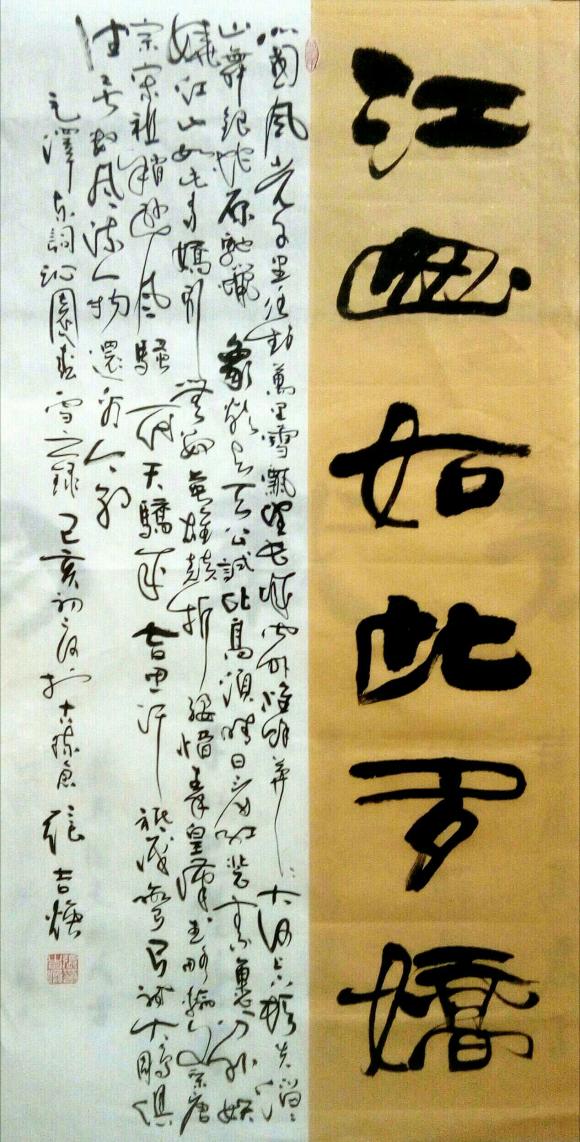 江山如此多嬌
北國風光千里冰封萬里雪飄望長城內外惟餘莽莽大河上下頓失滔滔
山舞銀蛇原馳蠟象欲與天公試比高須晴日看紅裝素裹分外妖
嬈江山如此多嬌引無數英雄競折腰惜秦皇漢武略輸文采唐
宗宋祖稍遜風騷一代天驕成吉思汗祇識彎弓射大鵰俱
往矣數風流人物還看今朝
毛澤東詞沁園春雪之錄 己亥初夏於古 張吉